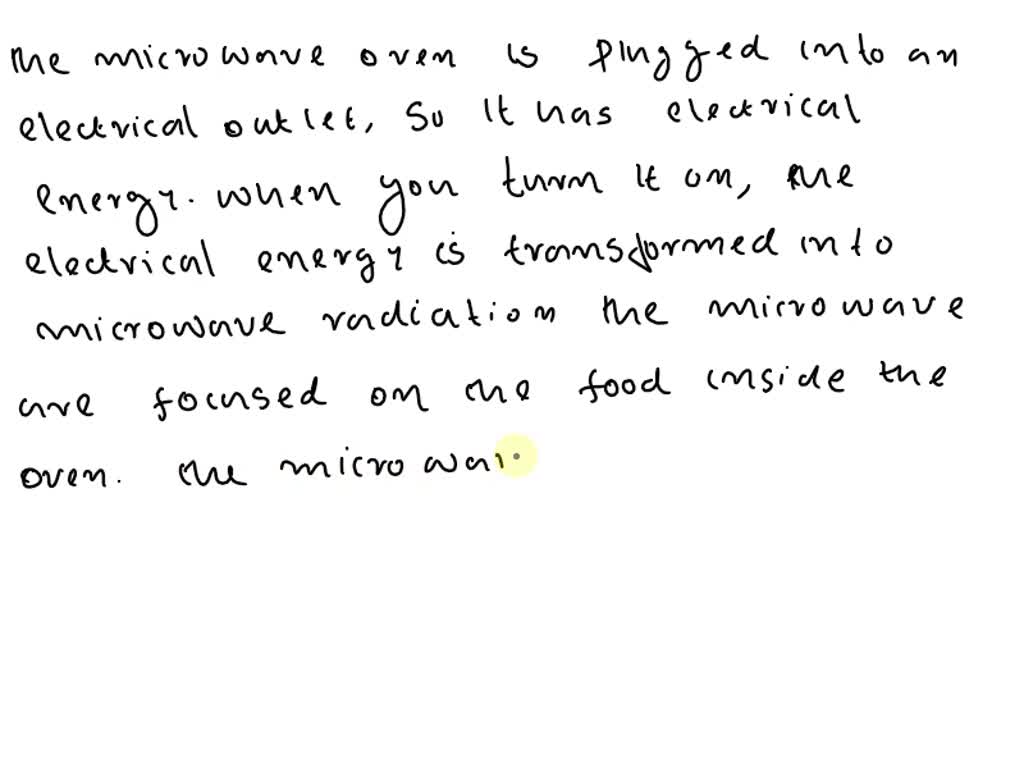 the microwave oven is plugged into an
electrical outlet, So It has electrical
energy. when you turn It on, the
electrical energy is transformed into
microwave radiation the microwave
are focused on the food inside the
oven. the micro wav